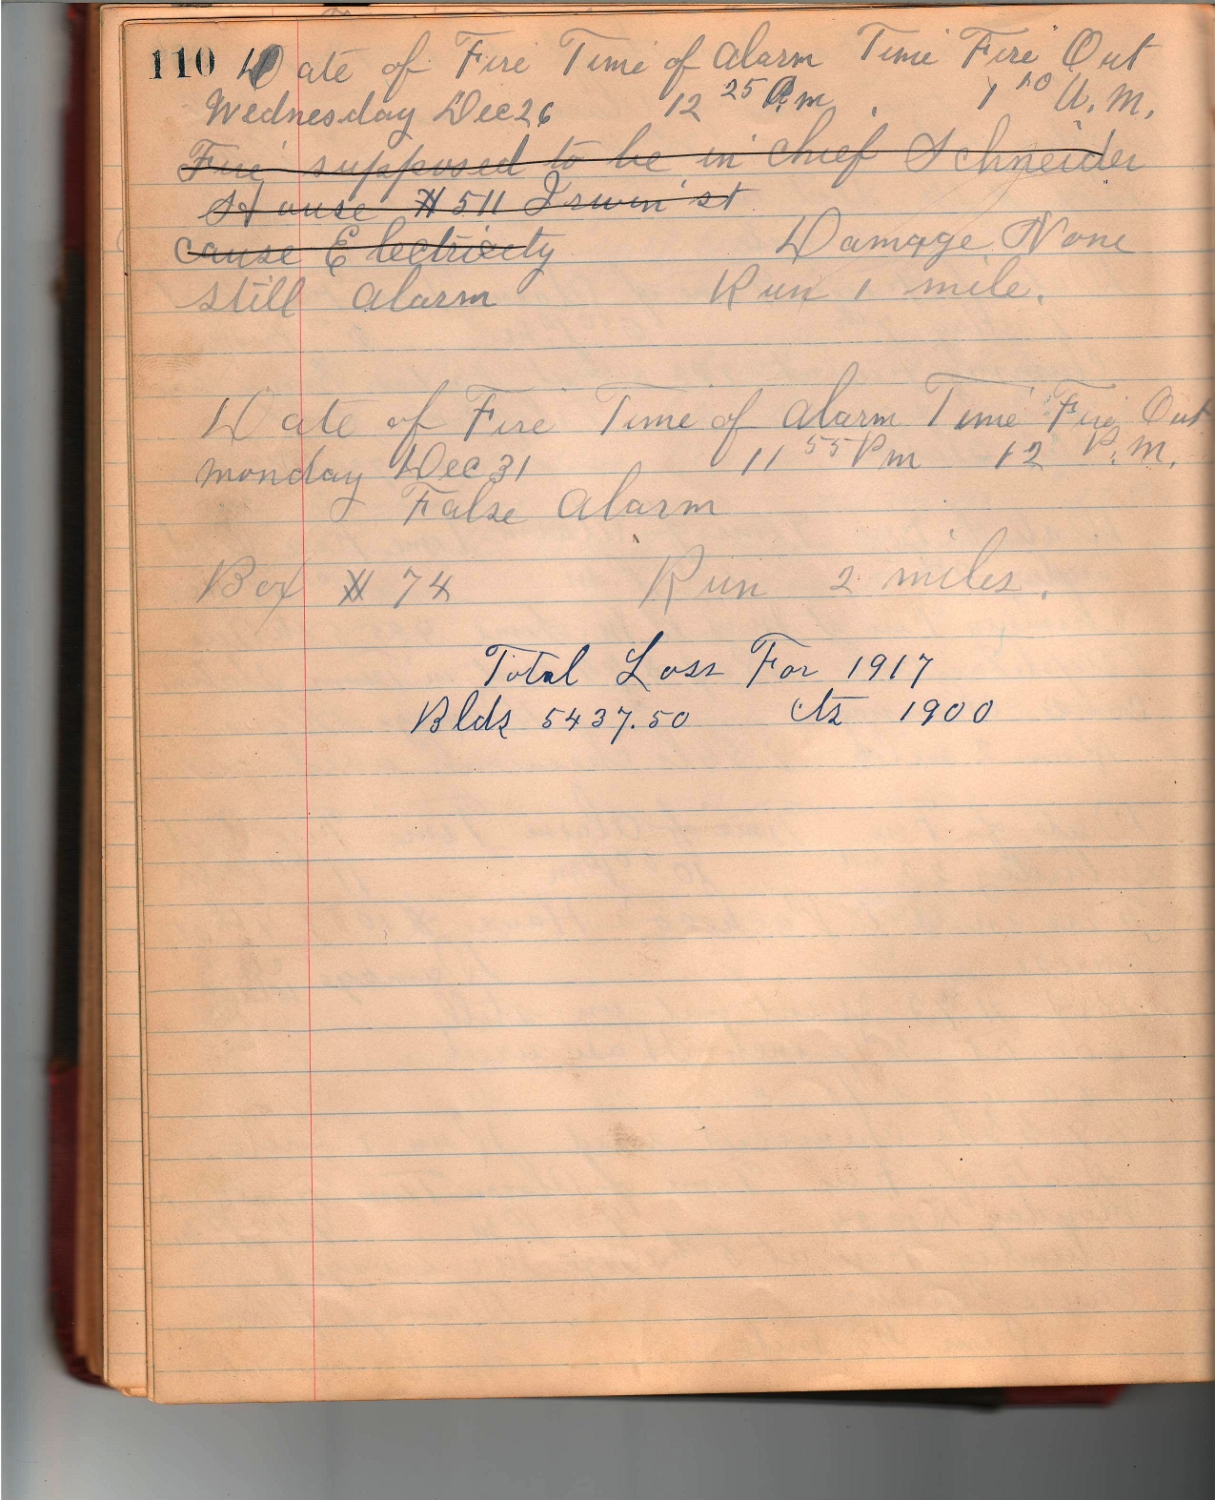 110 Date of Fire Time of Alarm Time Fire Out
Wednesday Dec 26 12 25 A.m. 1 10 A.M.
Fire supposed to be in Chief Schneider
House # 511 Irwin st
Cause Electricity Damage None
Still Alarm Run 1 mile.
Date of Fire Time of Alarm Time Fire Out
Monday Dec 31 11 55 Pm 12 P.M.
False Alarm
Box # 74 Run 2 miles.
Total Loss For 1917
Blds 5437.50 Cts 1900